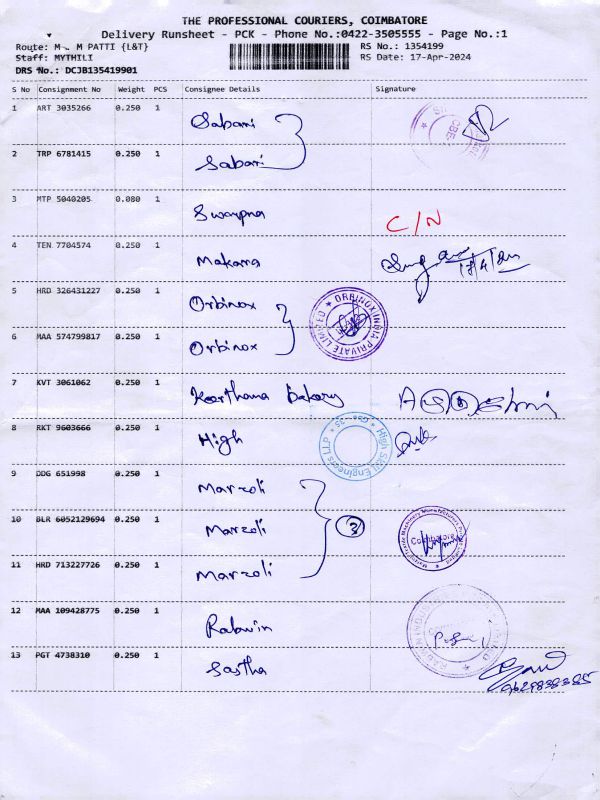 THE PROFESSIONAL COURIERS, COIMBATORE
Delivery Runsheet - PCK - Phone No.:0422-3505555 - Page No.:1
Route: M M PATTI {L&T}
RS No.: 1354199
Staff: MYTHILI
RS Date: 17-Apr-2024
DRS No.: DCJB135419901
S No Consignment No Weight PCS Consignee Details Signature
1 ART 3035266 0.250 1 Sabari
2 TRP 6781415 0.250 1 Sabari
3 MTP 5040205 0.080 1 Swapna C/N
4 TEN 7704574 0.250 1 Makara
5 HRD 326431227 0.250 1 Orbinox
ORBINOX INDIA PRIVATE LIMITED
6 MAA 574799817 0.250 1 Orbinox
7 KVT 3061062 0.250 1 Keerthana bakery
8 RKT 9603666 0.250 1 High
High Skill Engineers LLP
9 DDG 651998 0.250 1 Marzoli
10 BLR 6052129694 0.250 1 Marzoli 3
Coimbatore
11 HRD 713227726 0.250 1 Marzoli
12 MAA 109428775 0.250 1 Rabwin
13 PGT 4738310 0.250 1 Sastha
9629838385